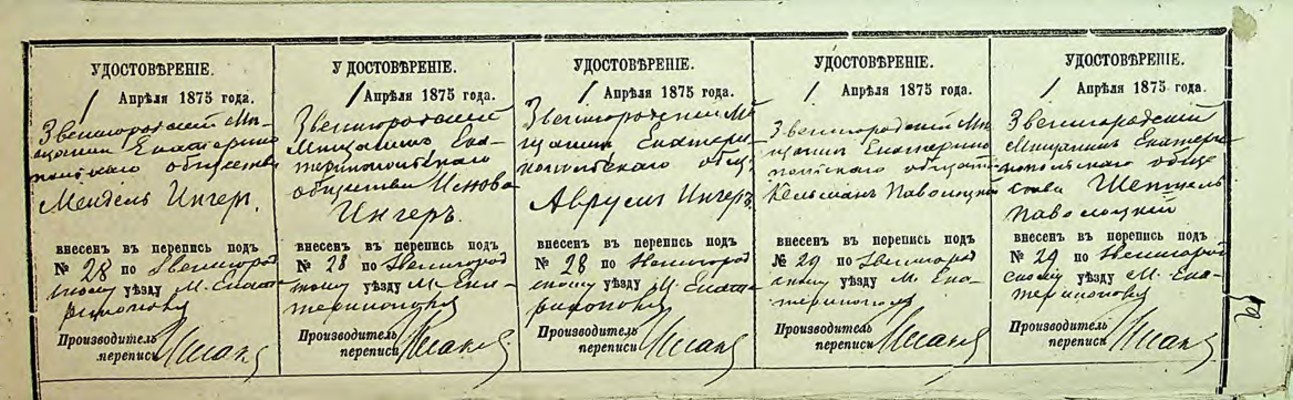 УДОСТОВѢРЕНІЕ.
1 Апрѣля 1875 года.
Звенигородскій Мѣ-
щанинъ Екатерино
польскаго общества
Мендель Ингеръ.
внесенъ въ перепись подъ
№ 28 по Звенигород
скому уѣзду М. Екате
ринополя
Производитель
переписи
УДОСТОВѢРЕНІЕ.
1 Апрѣля 1875 года.
Звенигородскій
Мѣщанинъ Ека-
теринопольскаго
общества
Ингеръ.
внесенъ въ перепись подъ
№ 28 по Звенигород
скому уѣзду М. Ека-
теринополя
Производитель
переписи
УДОСТОВѢРЕНІЕ.
1 Апрѣля 1875 года.
Звенигородскій Мѣ
щанинъ Екатери
нопольскаго общ.
Аврумъ Ингеръ.
внесенъ въ перепись подъ
№ 28 по Звенигород
скому уѣзду М. Екате
ринополя
Производитель
переписи
УДОСТОВѢРЕНІЕ.
1 Апрѣля 1875 года.
Звенигородскій Мѣ
щанинъ Екатерино
польскаго общест
Кельманъ Паволоцкій
внесенъ въ перепись подъ
№ 29 по Звенигород
скому уѣзду М. Ека-
теринополя
Производитель
переписи
УДОСТОВѢРЕНІЕ.
1 Апрѣля 1875 года.
Звенигородскій
Мѣщанинъ Екатери
нопольскаго обще
ства
Паволоцкій
внесенъ въ перепись подъ
№ 29 по Звенигород
скому уѣзду М. Ека-
теринополя
Производитель
переписи